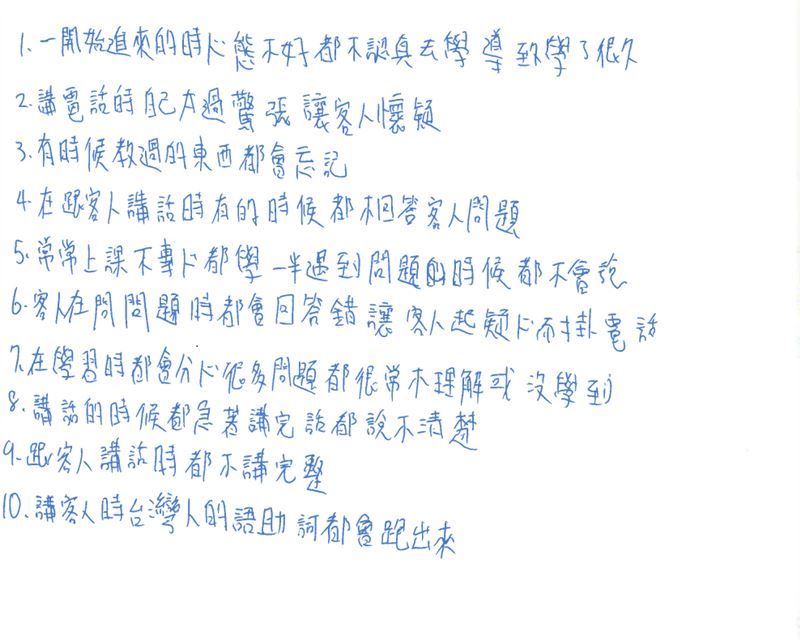 1.一開始進來的時心態不好都不認真去學導致學了很久
2.講電話時自己太過驚張讓客人懷疑
3.有時候教過的東西都會忘記
4.在跟客人講話時有的時候都相答客人問題
5.常常上課不專心都學一半遇到問題的時候都不會說
6.客人在問問題時都會回答錯讓客人起疑心而掛電話
7.在學習時都會分心很多問題都很常不理解或沒學到
8.講話的時候都急著講完話都說不清楚
9.跟客人講話時都不講完整
10.講客人時台灣人的語助詞都會跑出來